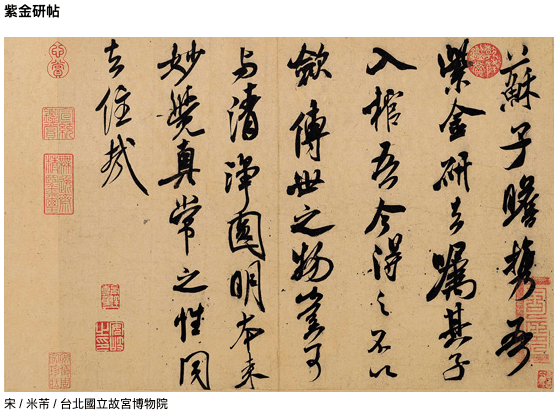 紫金研帖
蘇子瞻攜吾
紫金研去嘱其子
入棺吾今得之不以
歛傳世之物豈可
与清淨圓明本来
妙覺真常之性同
去住哉
宋 / 米芾 / 台北國立故宮博物院